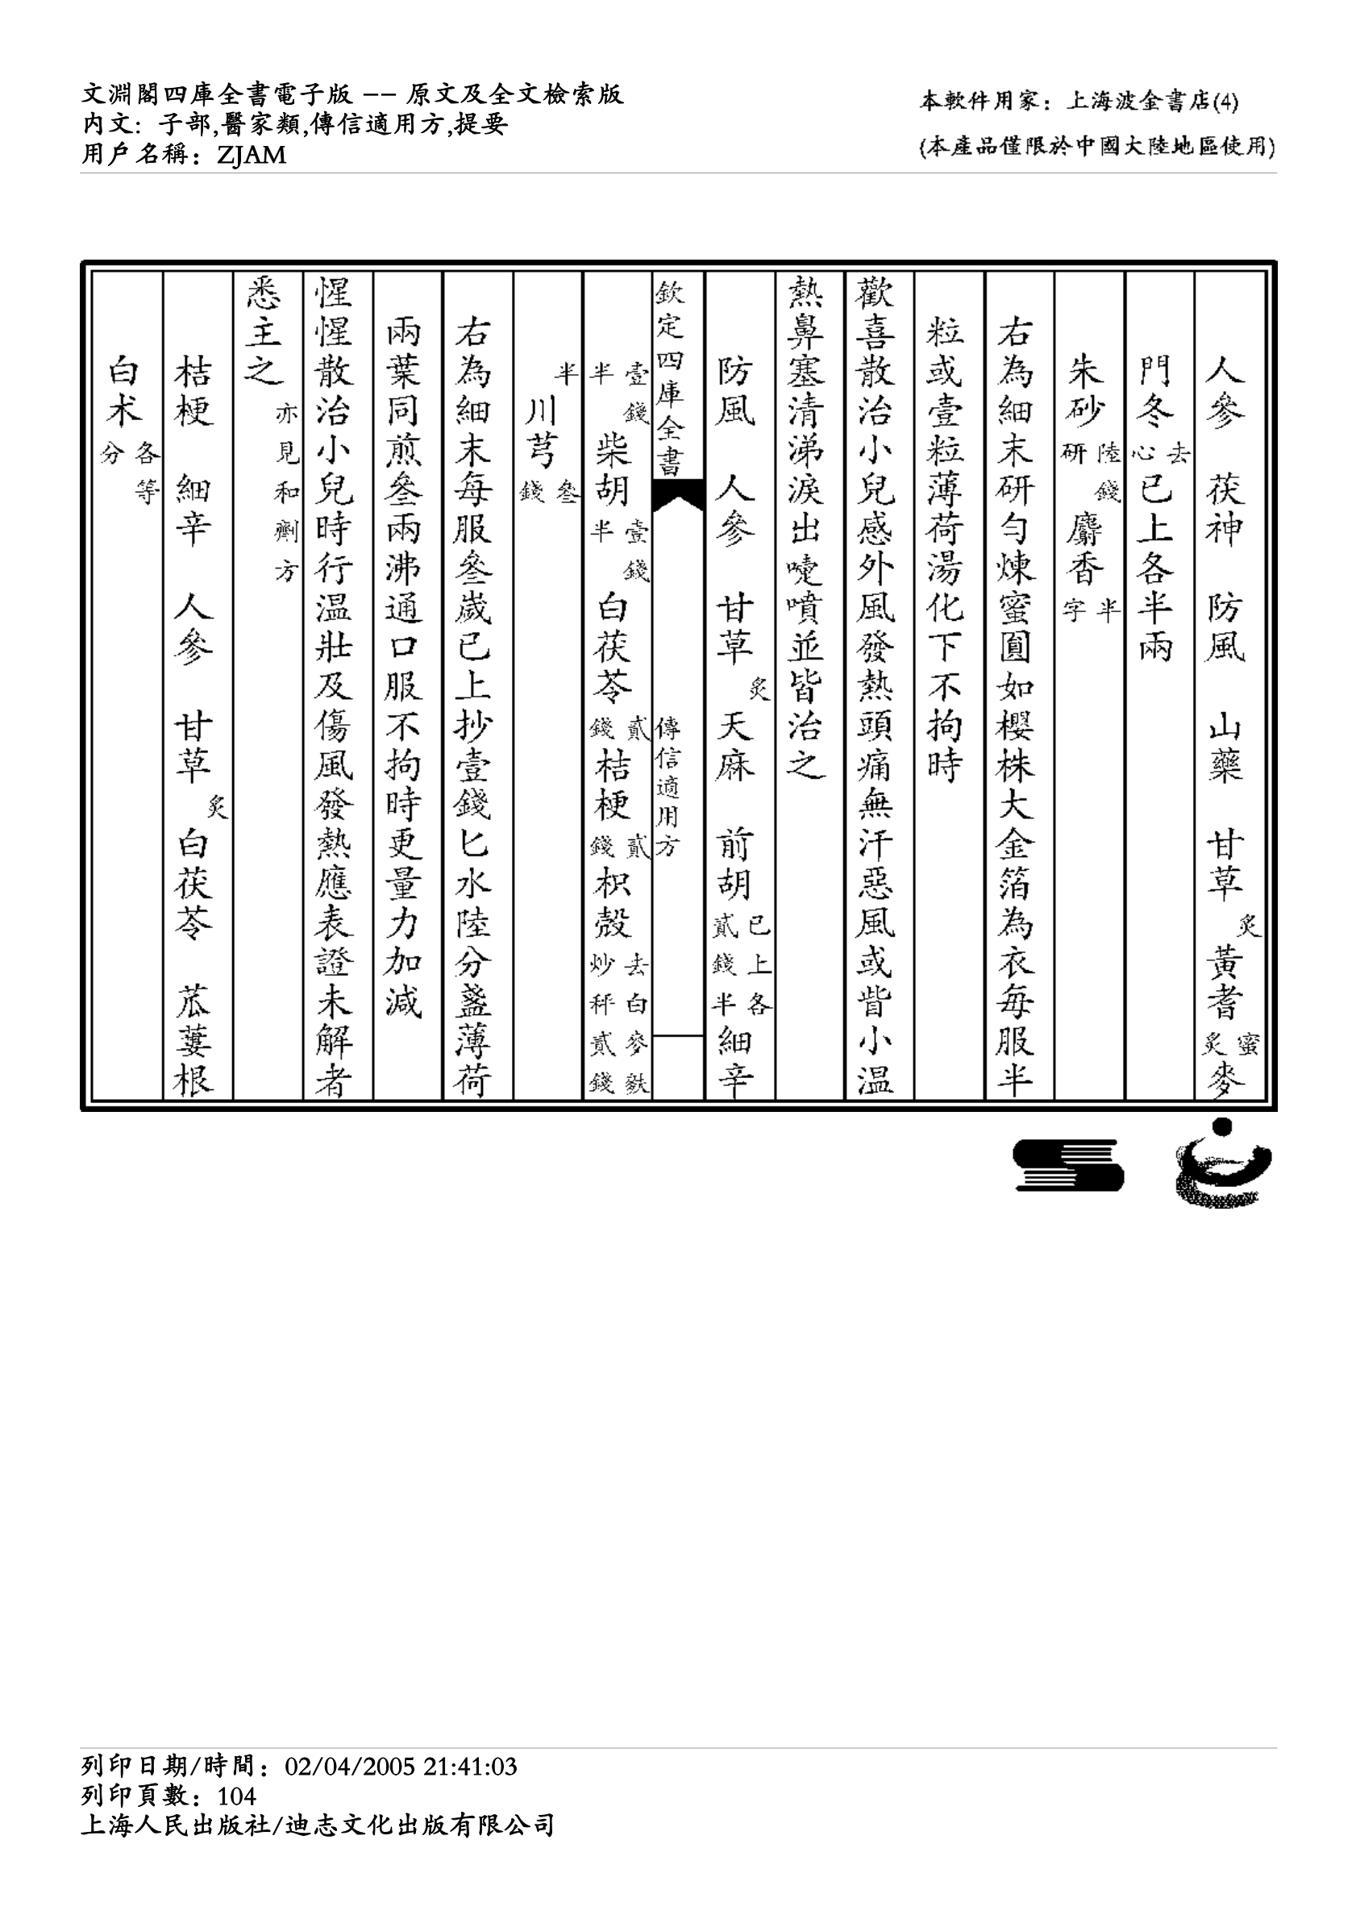 文淵閣四庫全書電子版 -- 原文及全文檢索版
内文: 子部,醫家類,傳信適用方,提要
用戶名稱: ZJAM
本軟件用家: 上海波金書店(4)
(本產品僅限於中國大陸地區使用)
人參 茯神 防風 山藥 甘草炙黃耆蜜炙麥
門冬去心已上各半兩
朱砂陸錢研麝香半字
右為細末研勻煉蜜圓如櫻株大金箔為衣每服半
粒或壹粒薄荷湯化下不拘時
歡喜散治小兒感外風發熱頭痛無汗惡風或眥小温
熱鼻塞清涕淚出嚏噴並皆治之
防風 人參 甘草炙天麻 前胡已上各貳錢半細辛
欽定四庫全書 傳信適用方
壹錢半柴胡壹錢半白茯苓貳錢桔梗貳錢枳殼去白麥麩炒秤貳錢
半川芎叁錢
右為細末每服叁嵗已上抄壹錢匕水陸分盞薄荷
兩葉同煎叁兩沸通口服不拘時更量力加減
惺惺散治小兒時行温壯及傷風發熱應表證未解者
悉主之亦見和劑方
桔梗 細辛 人參 甘草炙白茯苓 苽蔞根
白术各等分
列印日期/時間: 02/04/2005 21:41:03
列印頁數: 104
上海人民出版社/迪志文化出版有限公司